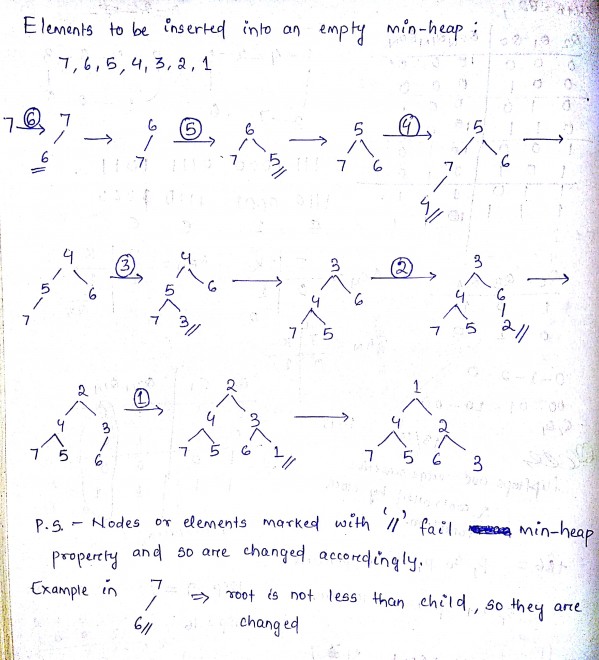 Elements to be inserted into an empty min-heap :
7, 6, 5, 4, 3, 2, 1
7 → ⑥ 7 → 6 ⑤ → 6 → 5 ④ → 5 →
6 7 7 5 7 6 7 6
4
4 ③ → 4 → 3 ② → 3 →
5 6 5 6 4 6 4 6
7 7 3 7 5 7 5 2
2 ① → 2 → 1
4 3 4 3 4 2
7 5 6 7 5 6 1 7 5 6 3
P.S. - Nodes or elements marked with '//' fail min-heap
property and so are changed accordingly.
Example in 7 ⇒ root is not less than child, so they are
6// changed